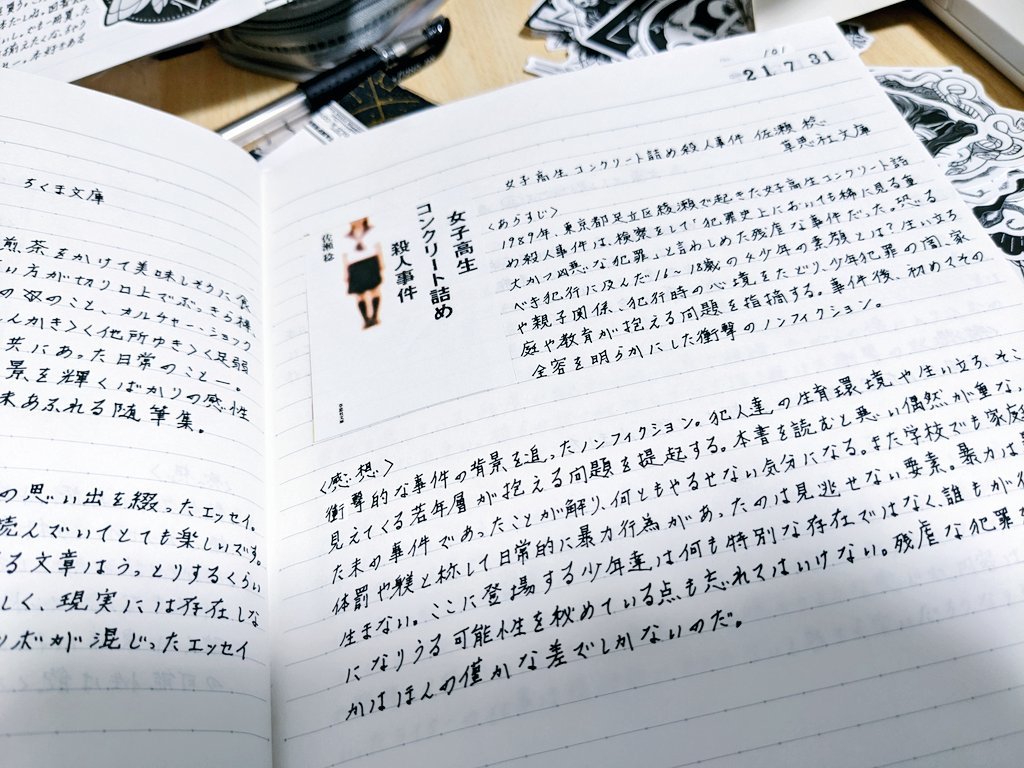 ちくま文庫
煎茶をかけて美味しそうに食
い方が切り口上でぶっきら棒
の奴のこと、カルチャー・ショック
んかき〉〈他所ゆき〉〈足弱
共にあった日常のこと―。
景を輝くばかりの感性
味あふれる随筆集。
の思い出を綴ったエッセイ。
読んでいてとても楽しいです。
る文章はうっとりするくらい
しく、現実には存在しな
ツボが混じったエッセイ
101
21.7.31
女子高生コンクリート詰め殺人事件 佐瀬稔
草思社文庫
女子高生
コンクリート詰め
殺人事件
佐瀬稔
草思社文庫
〈あらすじ〉
1989年、東京都足立区綾瀬で起きた女子高生コンクリート詰
め殺人事件は、検察をして「犯罪史上においても稀に見る重
大かつ凶悪な犯罪」と言わしめた残虐な事件だった。恐る
べき犯行に及んだ16〜18歳の4少年の素顔とは?生い立ち
や親子関係、犯行時の心境をたどり、少年犯罪の闇、家
庭や教育が抱える問題を指摘する。事件後、初めてその
全容を明らかにした衝撃のノンフィクション。
〈感想〉
衝撃的な事件の背景を追ったノンフィクション。犯人達の生育環境や生い立ち、そこ
見えてくる若年層が抱える問題を提起する。本書を読むと悪い偶然が重な
た末の事件であったことが解り、何ともやるせない気分になる。また学校でも家庭
体罰や躾と称して日常的に暴力行為があったのは見逃せない要素。暴力は
生まない。ここに登場する少年達は何も特別な存在ではなく、誰もが
になりうる可能性を秘めている点も忘れてはいけない。残虐な犯罪
かはほんの僅かな差でしかないのだ。